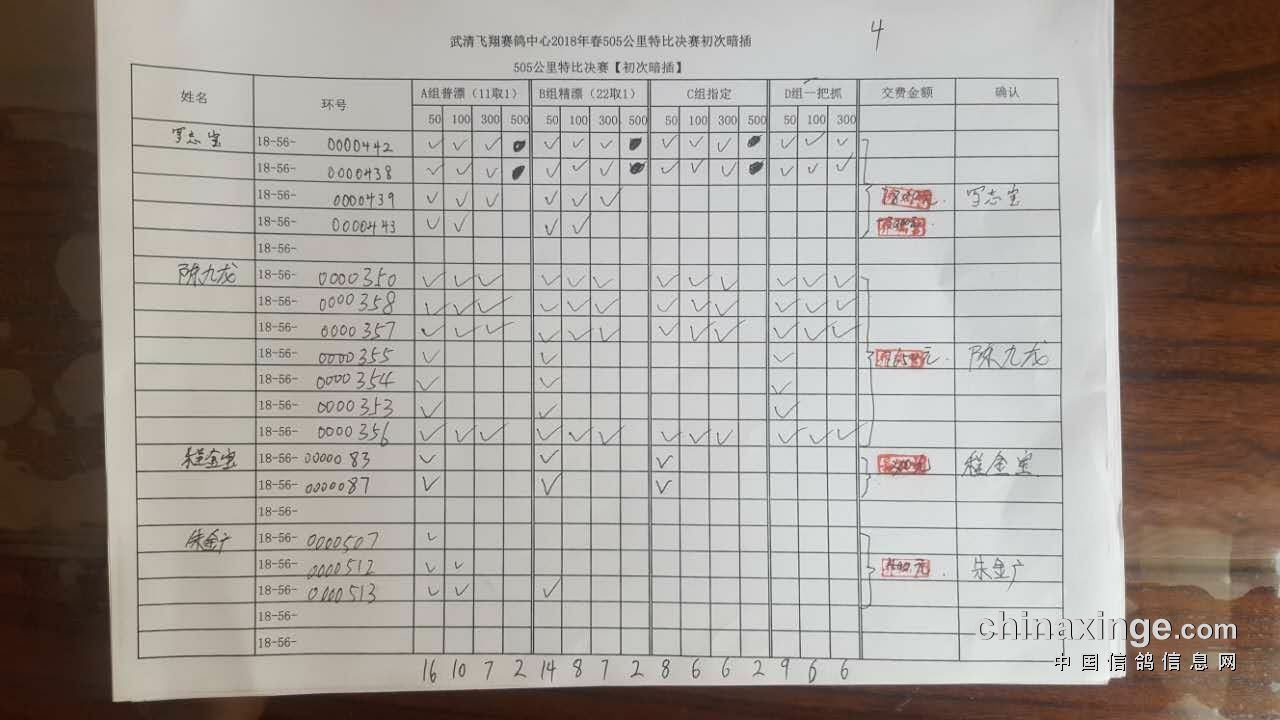 4
武清飞翔赛鸽中心2018年春505公里特比决赛初次暗插
505公里特比决赛【初次暗插】
姓名 环号 A组普漂（11取1） B组精漂（22取1） C组指定 D组一把抓 交费金额 确认
50 100 300 500 50 100 300 500 50 100 300 500 50 100 300
志宝 18-56- 0000442 ✓ ✓ ✓ ● ✓ ✓ ✓ ● ✓ ✓ ✓ ● ✓ ✓ ✓
18-56- 0000438 ✓ ✓ ✓ ● ✓ ✓ ✓ ● ✓ ✓ ✓ ● ✓ ✓ ✓
18-56- 0000439 ✓ ✓ ✓ ✓ ✓ ✓ 志宝
18-56- 0000443 ✓ ✓ ✓ ✓
18-56-
陈九龙 18-56- 0000350 ✓ ✓ ✓ ✓ ✓ ✓ ✓ ✓ ✓ ✓ ✓ ✓
18-56- 0000358 ✓ ✓ ✓ ✓ ✓ ✓ ✓ ✓ ✓ ✓ ✓ ✓
18-56- 0000357 ✓ ✓ ✓ ✓ ✓ ✓ ✓ ✓ ✓ ✓ ✓ ✓
18-56- 0000355 ✓ ✓ ✓ 元 陈九龙
18-56- 0000354 ✓ ✓ ✓
18-56- 0000353 ✓ ✓ ✓
18-56- 0000356 ✓ ✓ ✓ ✓ ✓ ✓ ✓ ✓ ✓ ✓ ✓ ✓
程金宝 18-56- 0000083 ✓ ✓ ✓ 程金宝
18-56- 0000087 ✓ ✓ ✓
18-56-
朱金广 18-56- 0000507 ✓
18-56- 0000512 ✓ ✓ 元 朱金广
18-56- 0000513 ✓ ✓ ✓
18-56-
18-56-
16 10 7 2 14 8 7 2 8 6 6 2 9 6 6
chinaxinge.com
中国信鸽信息网